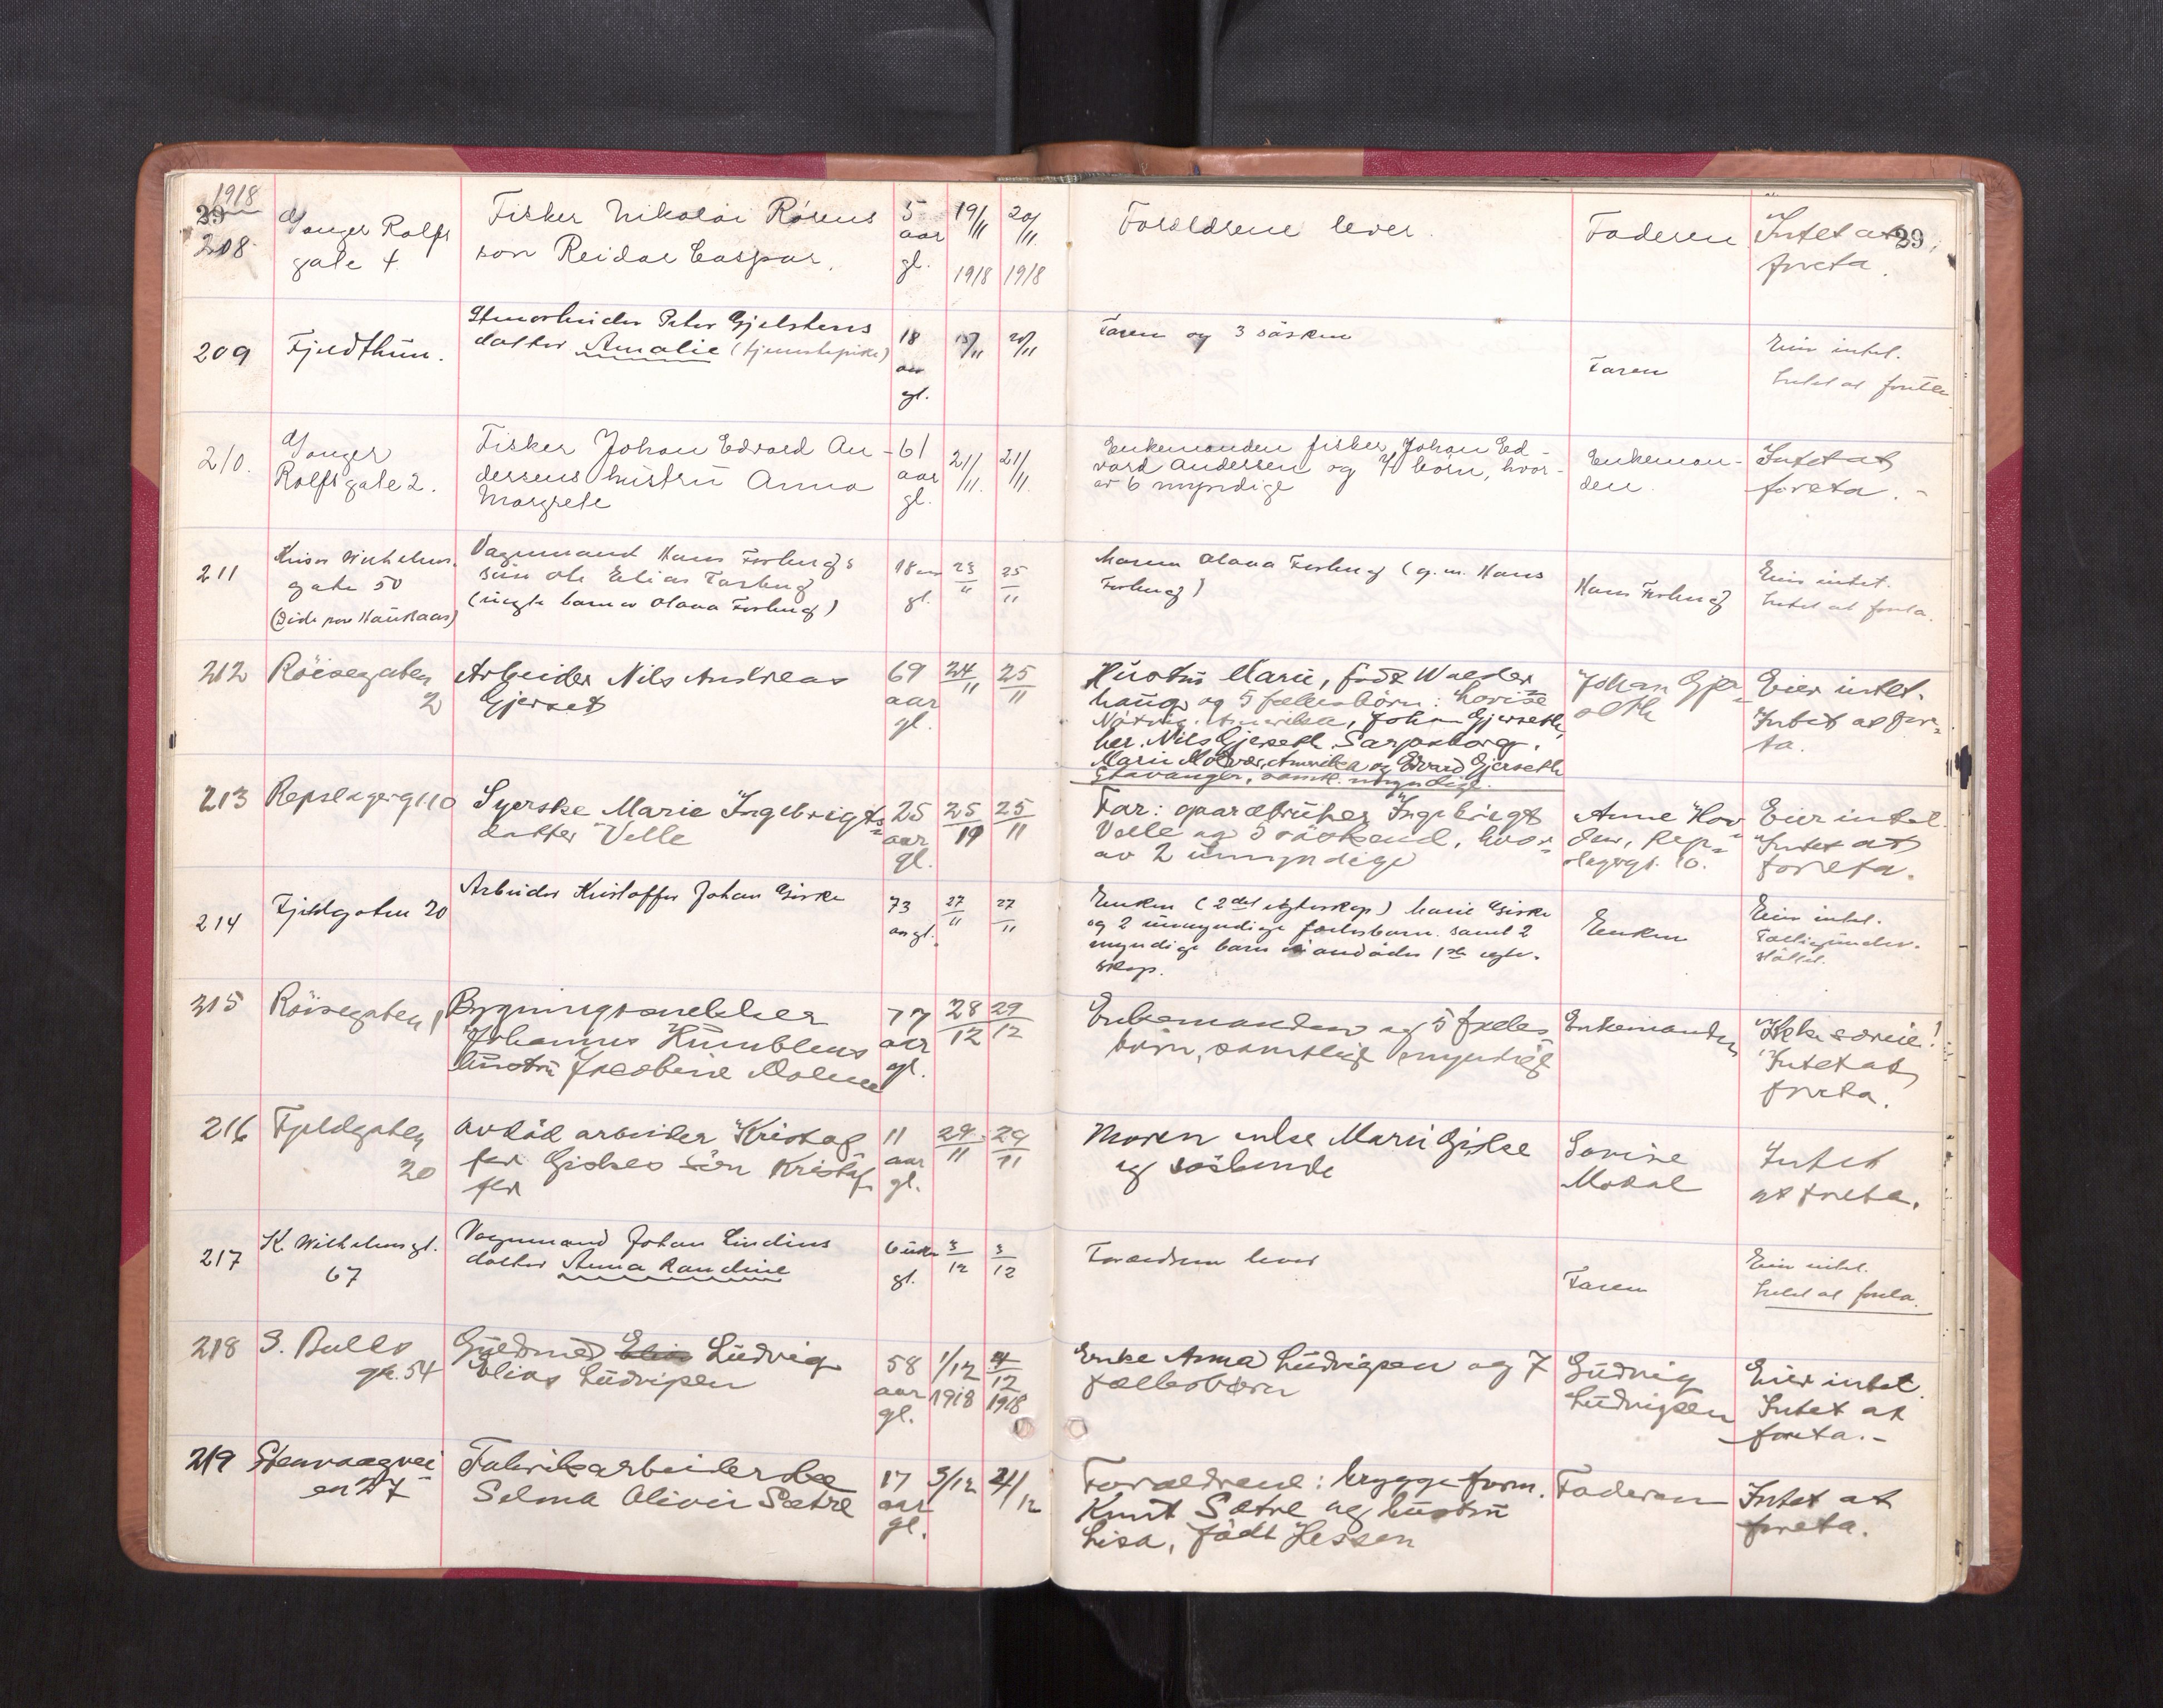 1918
29
208
Ganger Rolfs
gate 4
Fisker Nikolai Röseus
son Reidar Caspar.
5
aar
gl.
19/11
1918
20/11
1918
Forældrene lever.
Faderen
Intet at
foreta.
29
209
Fjeldthun.
Stenarbeider Peter Gjelstens
datter Amalie (tjenestepike)
18
aar
gl.
15/11
20/11
Faren og 3 søsken
Faren
Eier intet.
Intet at foreta.
210.
Ganger
Rolfsgate 2.
Fisker Johan Edvard An-
dersens hustru Anna
Margrete
61
aar
gl.
21/11.
21/11.
Enkemanden fisker Johan Ed-
vard Andersen og 7 börn, hvor-
av 6 myndige
Enkeman-
den.
Intet at
foreta. -
211
Keiser Wilhelms
gate 50
(Död paa Haukaas)
Vognmand Hans Forbergs
sön Ole Elias Forberg
(uegte barn av Olava Forberg)
18 aar
gl.
23/11
25/11
Moren Olava Forberg (g.m. Hans
Forberg)
Hans Forberg
Eier intet.
Intet at foreta.
212
Röisegaten
2
Arbeider Nils Andreas
Gjerset
69
aar
gl.
24/11
25/11
Hustru Marie, född Walder
haug og 5 fællesbörn: Lovise
Amerika, Johan Gjerseth,
her. Nils Gjerseth, Sarpsborg,
Marie Molvær, Amerika og Edvard Gjerseth
Stavanger, samtl. myndige.
Johan Gjer-
seth
Eier intet.
Intet at fore-
ta.
213
Repslagergt. 10
Syerske Marie Ingebrigts-
datter Velle
25
aar
gl.
25/19
25/11
Far: gaardbruker Ingebrigt
Velle og 5 söskend, hvor-
av 2 umyndige
Anne Hov-
den, Rep-
slagergt. 10.
Eier intet.
Intet at
foreta.
214
Fjeldgaten 20
Arbeider Kristoffer Johan Giske
73
aar gl.
27/11
27/11
Enken (2det egteskap) Marie Giske
og 2 umyndige fællesbarn samt 2
myndige barn i avdødes 1ste egte-
skap.
Enken
Eier intet.
Fattigunder-
støttet.
215
Röisegaten 1
Bygningssnekker
Johannes Humblens
hustru Jacobine Molene
77
aar
gl.
28/12
29/12
Enkemanden og 5 fælles
börn, samtlige myndige
Enkemanden
Ikke særeie!
Intet at
foreta.
216
Fjeldgaten
20
Avdöd arbeider Kristof
fer Giskes sön Kristof
fer
11
aar
gl.
29/11
29/11
Moren enke Marie Giske
og söskende
Lovise
Mokal
Intet
at foreta.
217
K. Wilhelmsgt.
67
Vognmand Johan Lindins
datter Anna Randine
6 uker
gl.
3/12
3/12
Forældrene lever
Faren
Eier intet.
Intet at foreta.
218
S. Bulls
gt. 54
Guldsmed Elias Ludvig
Elias Ludvigsen
58
aar
gl.
1/12
1918
4/12
1918
Enke Anna Ludvigsen og 7
fællesbörn
Ludvig
Ludvigsen
Eier intet.
Intet at
foreta.-
219
Stenvaagvei-
en 27
Fabrikarbeiderske
Selma Olivie Sætre
17
aar
gl.
3/12
4/12
Forældrene: bryggeform.
Knut Sætre og hustru
Lisa, född Jessen
Faderen
Intet at
foreta.